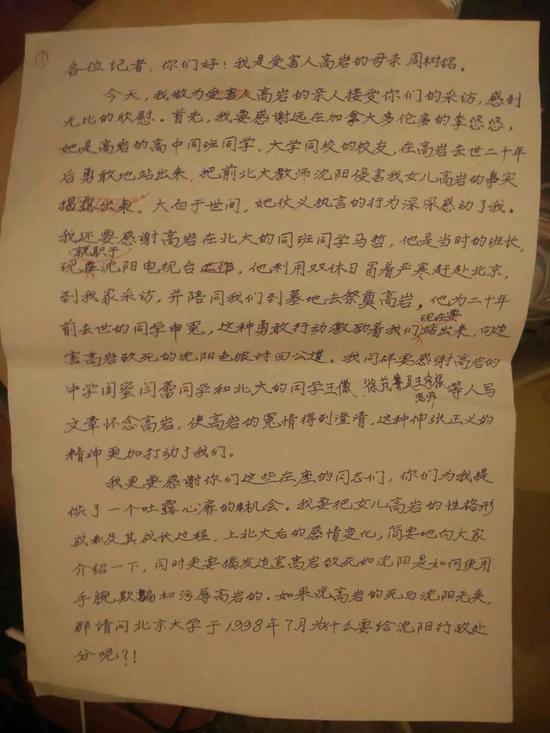 ①
各位记者,你们好!我是受害人高岩的母亲周树铭。
今天,我做为受害人高岩的亲人接受你们的采访,感到
无比的欣慰。首先,我要感谢远在加拿大多伦多的李悠悠,
她是高岩的高中同班同学、大学同校的校友,在高岩去世二十年
后勇敢地站出来,把前北大教师沈阳侵害我女儿高岩的事实
揭露出来,大白于世间,她仗义执言的行为深深感动了我。
我还要感谢高岩在北大的同班同学马哲,他是当时的班长,
现就职于沈阳电视台,他利用双休日冒着严寒赶赴北京,
到我家采访,并陪同我们到墓地去祭奠高岩,他为二十年
前去世的同学申冤,这种勇敢行动激励着我们现在要站出来,向迫
害高岩致死的沈阳老贼讨回公道。我同样要感谢高岩的
中学闺蜜闫蕾同学和北大的同学王儆、徐芃等及王宇根老师等人写
文章怀念高岩,使高岩的冤情得到澄清,这种伸张正义的
精神更加打动了我们。
我更要感谢你们这些在座的同志们,你们为我提
供了一个吐露心扉的机会。我要把女儿高岩的性格形
成和及其成长过程,上北大后的感情变化,简要地向大家
介绍一下,同时更要揭发迫害高岩致死的沈阳是如何使用
手腕欺骗和污辱高岩的。如果说高岩的死与沈阳无关,
那请问北京大学于1998年7月为什么要给沈阳行政处
分呢?!